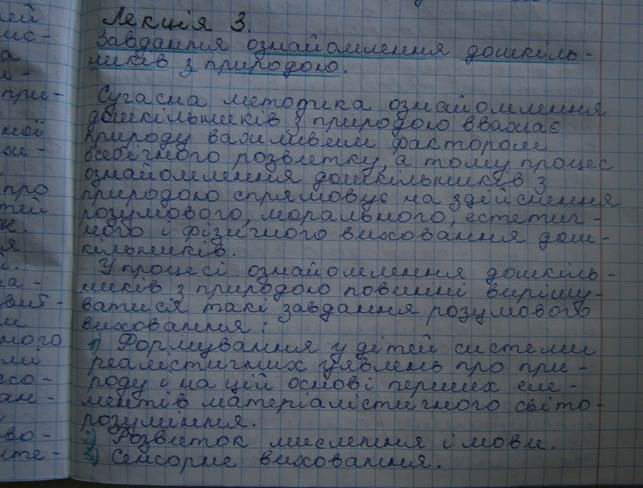 Лекція 3.
Завдання ознайомлення дошкіль-
ників з природою.
Сучасна методика ознайомлення
дошкільників з природою вважає
природу важливим фактором
всебічного розвитку, а тому процес
ознайомлення дошкільників з
природою спрямовує на здійснення
розумового, морального, естетич-
ного і фізичного виховання дош-
кільників.
У процесі ознайомлення дошкіль-
ників з природою повинні вирішу-
ватися такі завдання розумового
виховання:
1) Формування у дітей системи
реалістичних уявлень про при-
роду і на цій основі перших еле-
ментів матеріалістичного світо-
розуміння.
2) Розвиток мислення і мови.
3) Сенсорне виховання.